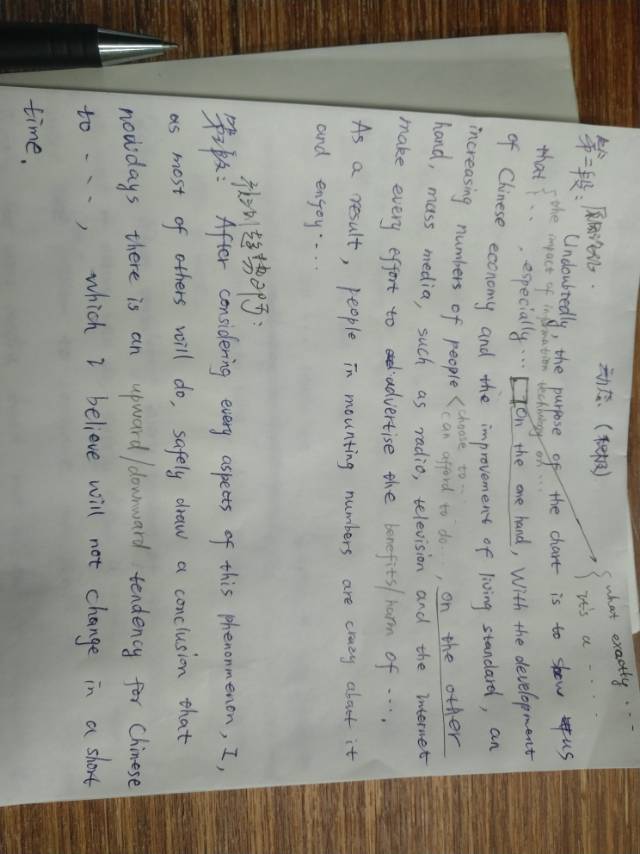 动态:
what exactly ...
第二段: 原因论证.
{ it's a ....
Undoubtedly, the purpose of the chart is to show us
that { the impact of information technology on ...
..., especially ... On the one hand, With the development
of Chinese economy and the improvement of living standard, an
increasing numbers of people < choose to ...
can afford to do ..., on the other
hand, mass media, such as radio, television and the internet
make every effort to advertise the benefits/harm of ....
As a result, people in mounting numbers are crazy about it
and engoy ....
第三段: After considering every aspects of this phenonmenon, I,
as most of others will do, safely draw a conclusion that
nowidays there is an upward/downward tendency for Chinese
to ..., which I believe will not change in a short
time.